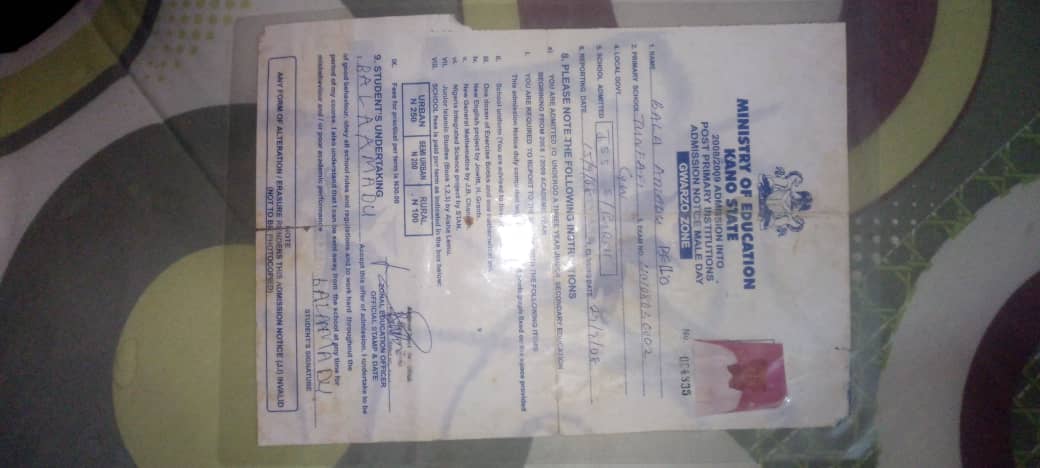 MINISTRY OF EDUCATION
KANO STATE
2008/2009 ADMISSION INTO
POST PRIMARY INSTITUTIONS
ADMISSION NOTICE MALE DAY
GWARZO ZONE
No. 004935
1. NAME BALA AMADU BELLO
2. PRIMARY SCHOOL TUNFAFI 3. EXAM NO.
4. LOCAL GOVT. GW
5. SCHOOL ADMITTED
6. REPORTING DATE 15/9/08 7. CLOSING DATE 29/9/08
8. PLEASE NOTE THE FOLLOWING INSTRUCTIONS
a) YOU ARE ADMITTED TO UNDERGO A THREE YEAR JUNIOR SECONDARY EDUCATION
BEGINNING FROM 2008 / 2009 ACADEMIC YEAR
I. YOU ARE REQUIRED TO REPORT TO THE WITH THE FOLLOWING ITEMS
This admission Notice duly completed fixed on the space provided
ii. School uniform (You are advised to
iii. One dozen of Exercise Books and one mathematical set
iv. New English project by Jowitt, H. Grant.
v. New General Mathematics by J.B.
vi. Nigeria Integrated Science project by STAN.
VII. Junior Islamic Studies (Book 1,2,3) by Aisha Lemu.
VIII. SCHOOL fees is paid per term as indicated in the box below:
URBAN SEMI URBAN RURAL
N 250 N 200 N 100
IX. Fees for practical per term is N30.00
ZONAL EDUCATION OFFICER
OFFICIAL STAMP & DATE
9. STUDENT'S UNDERTAKING
I BALA AMADU Accept this offer of admission. I undertake to be
of good behaviour, obey all school rules and regulations and to work hard throughout the
period of my course. I also understand that I can be sent away from the school at any time for
misbehaviour and / or poor academic performance BALA AMADU
STUDENT'S SIGNATURE
NOTE
ANY FORM OF ALTERATION / ERASURE RENDERS THIS ADMISSION NOTICE (J.I) INVALID
(NOT TO BE PHOTOCOPIED)